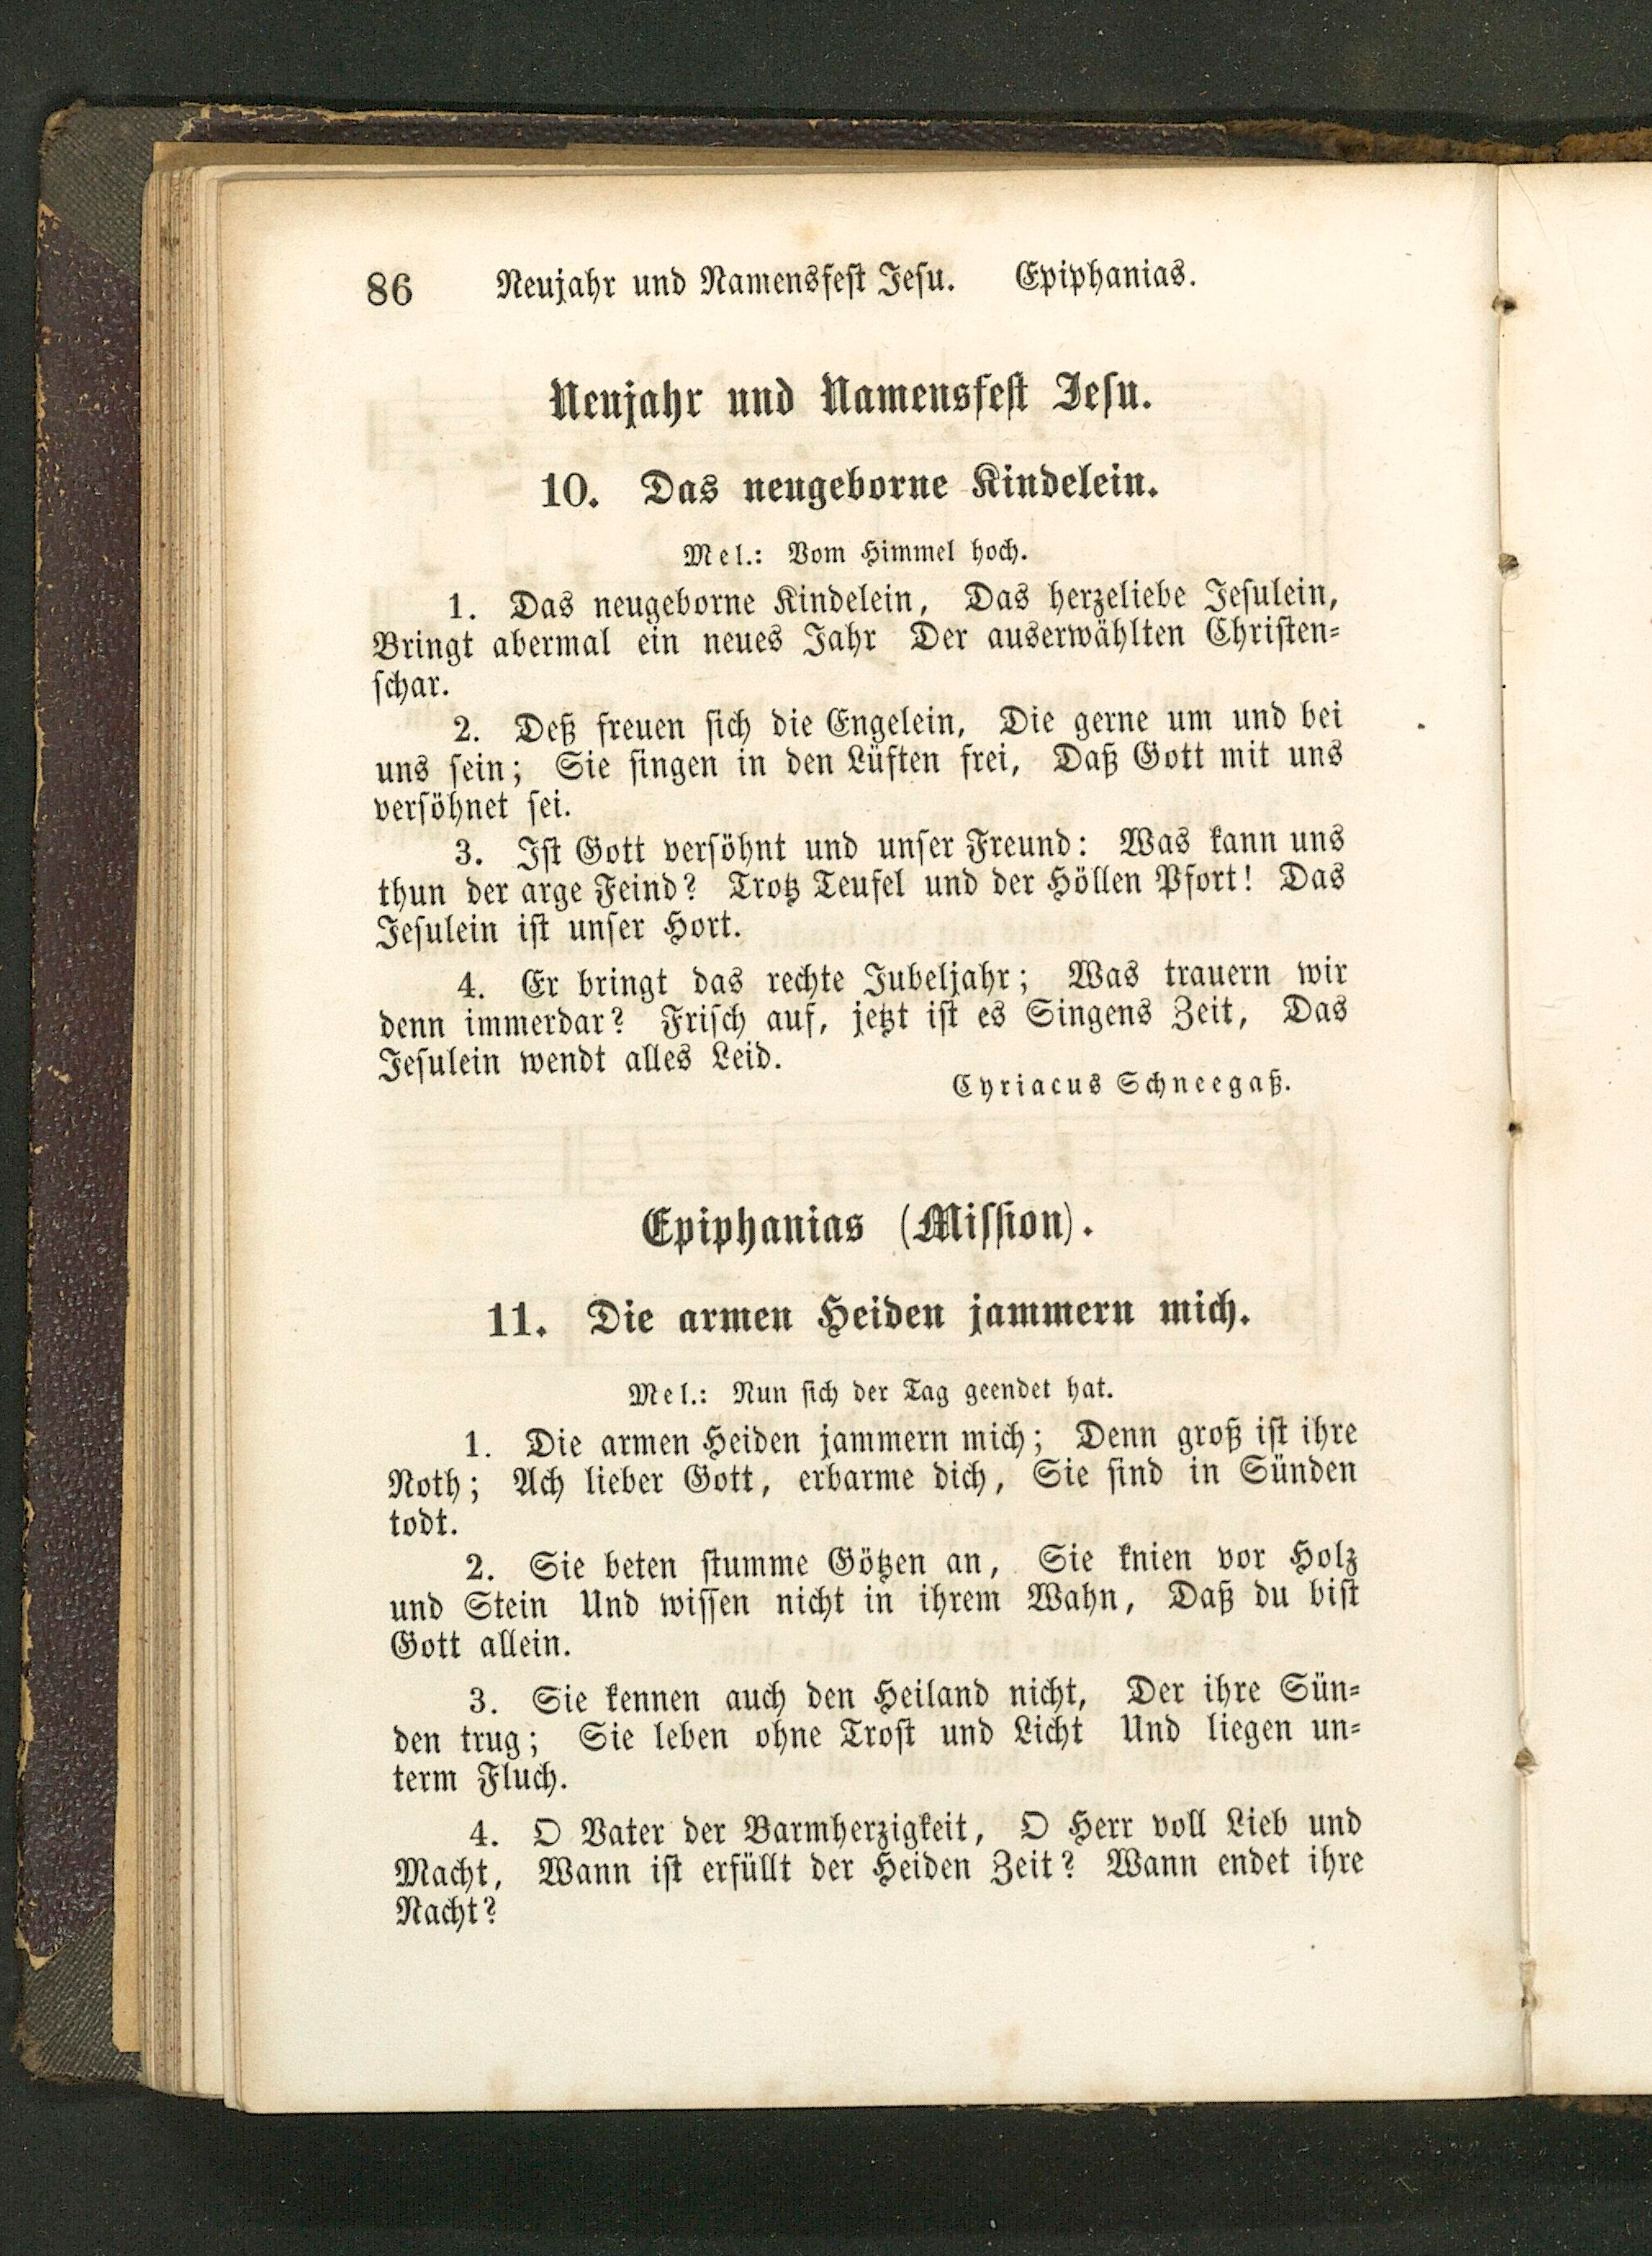 86 Neujahr und Namensfest Jesu. Epiphanias.
Neujahr und Namensfest Jesu.
10. Das neugeborne Kindelein.
Mel.: Vom Himmel hoch.
1. Das neugeborne Kindelein, Das herzeliebe Jesulein,
Bringt abermal ein neues Jahr Der auserwählten Christen-
schar.
2. Deß freuen sich die Engelein, Die gerne um und bei
uns sein; Sie singen in den Lüften frei, Daß Gott mit uns
versöhnet sei.
3. Ist Gott versöhnt und unser Freund: Was kann uns
thun der arge Feind? Trotz Teufel und der Höllen Pfort! Das
Jesulein ist unser Hort.
4. Er bringt das rechte Jubeljahr; Was trauern wir
denn immerdar? Frisch auf, jetzt ist es Singens Zeit, Das
Jesulein wendt alles Leid.
Cyriacus Schneegaß.
Epiphanias (Mission).
11. Die armen Heiden jammern mich.
Mel.: Nun sich der Tag geendet hat.
1. Die armen Heiden jammern mich; Denn groß ist ihre
Noth; Ach lieber Gott, erbarme dich, Sie sind in Sünden
todt.
2. Sie beten stumme Götzen an, Sie knien vor Holz
und Stein Und wissen nicht in ihrem Wahn, Daß du bist
Gott allein.
3. Sie kennen auch den Heiland nicht, Der ihre Sün-
den trug; Sie leben ohne Trost und Licht Und liegen un-
term Fluch.
4. O Vater der Barmherzigkeit, O Herr voll Lieb und
Macht, Wann ist erfüllt der Heiden Zeit? Wann endet ihre
Nacht?